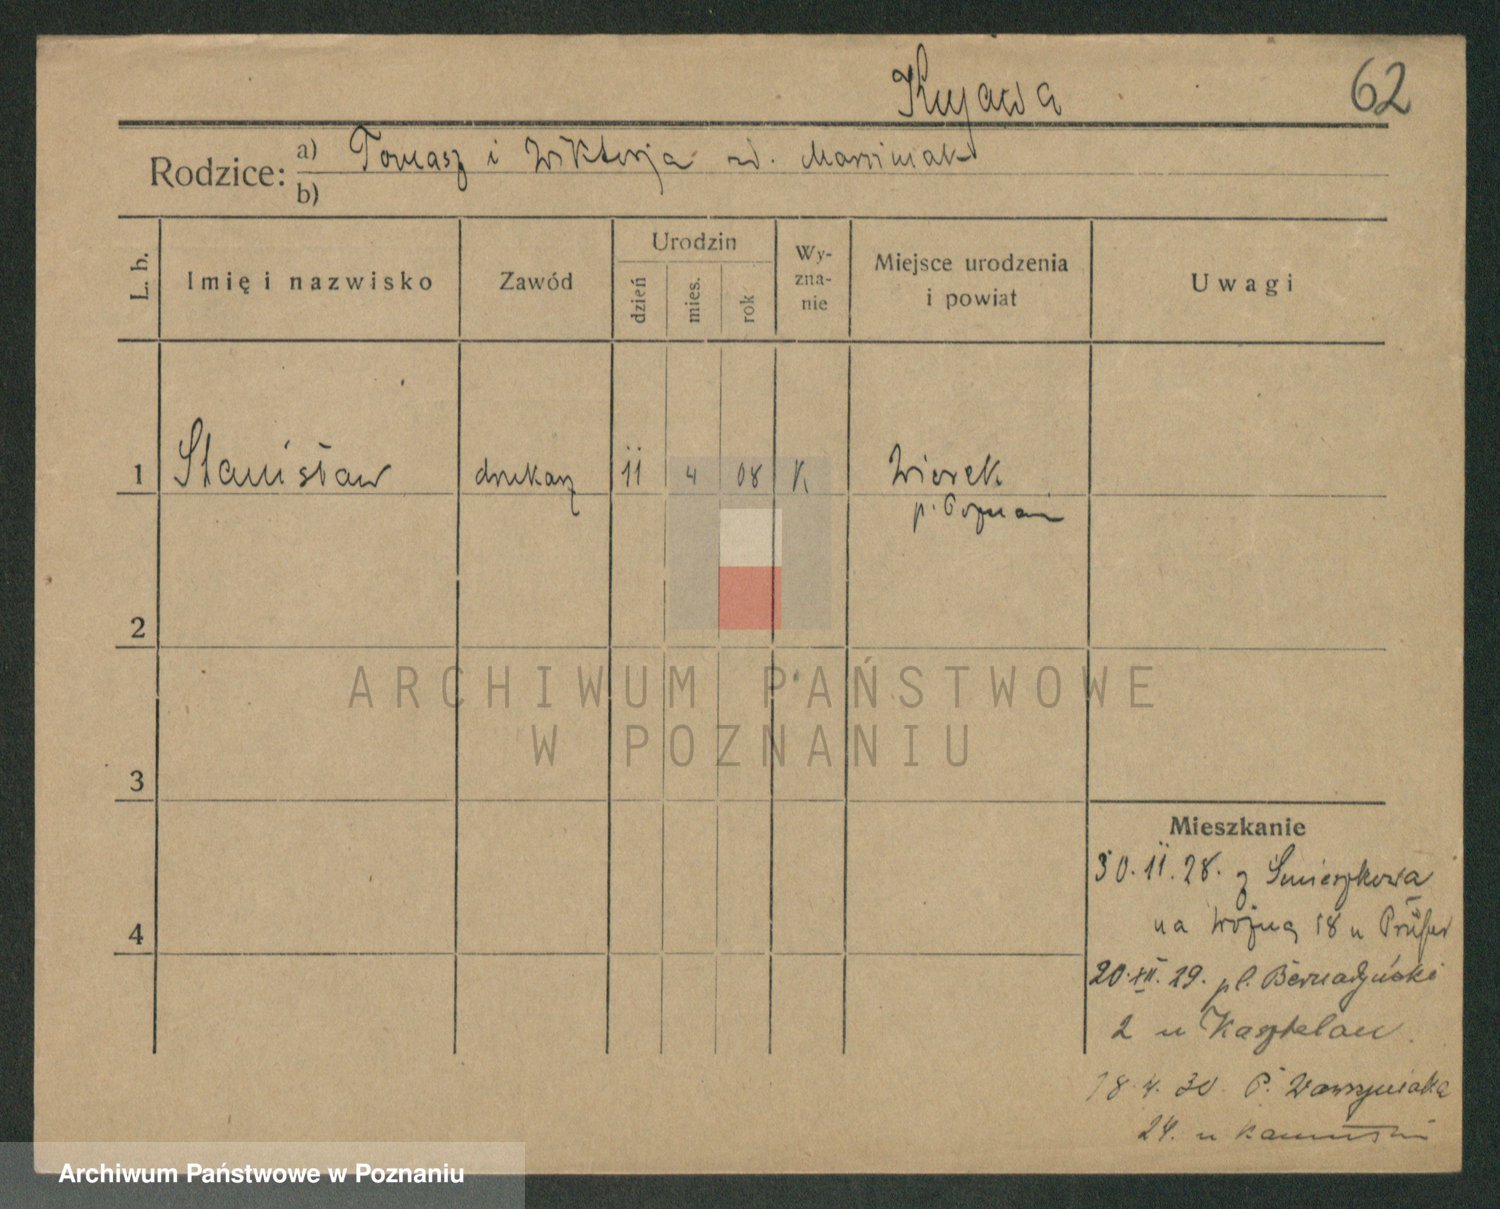 Kujawa
62
Rodzice:
a) Tomasz i Wiktorja
b)
L. b.
Imię i nazwisko
Zawód
Urodzin
dzień
mies.
rok
Wy-
zna-
nie
Miejsce urodzenia
i powiat
Uwagi
1 Stanisław drukarz 11 4 08 K Wiorek
p. Poznań
2
3
4
ARCHIWUM PAŃSTWOWE
W POZNANIU
Mieszkanie
30. 11. 28. z
18 u Prüfer
20. XII. 29. pl. Bernadyński
2 u Kasztelan
18. 4. 30 P. Wawrzyniaka
24. u Kamiński
Archiwum Państwowe w Poznaniu